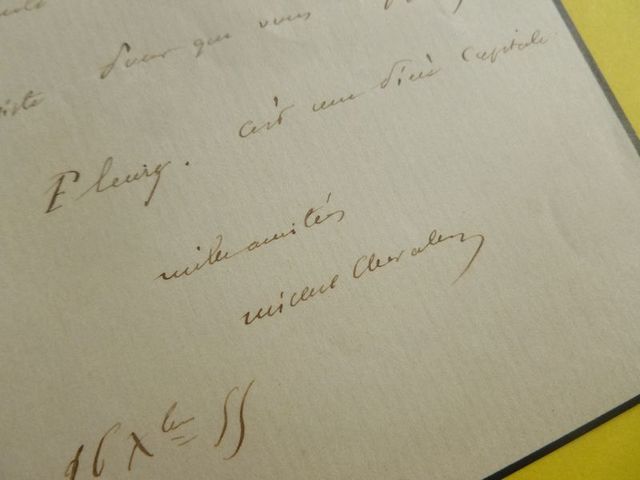 pour que vous
Fleury. c'est une capitale
mille amitiés
Michel Chevalier
16 Xbre 55